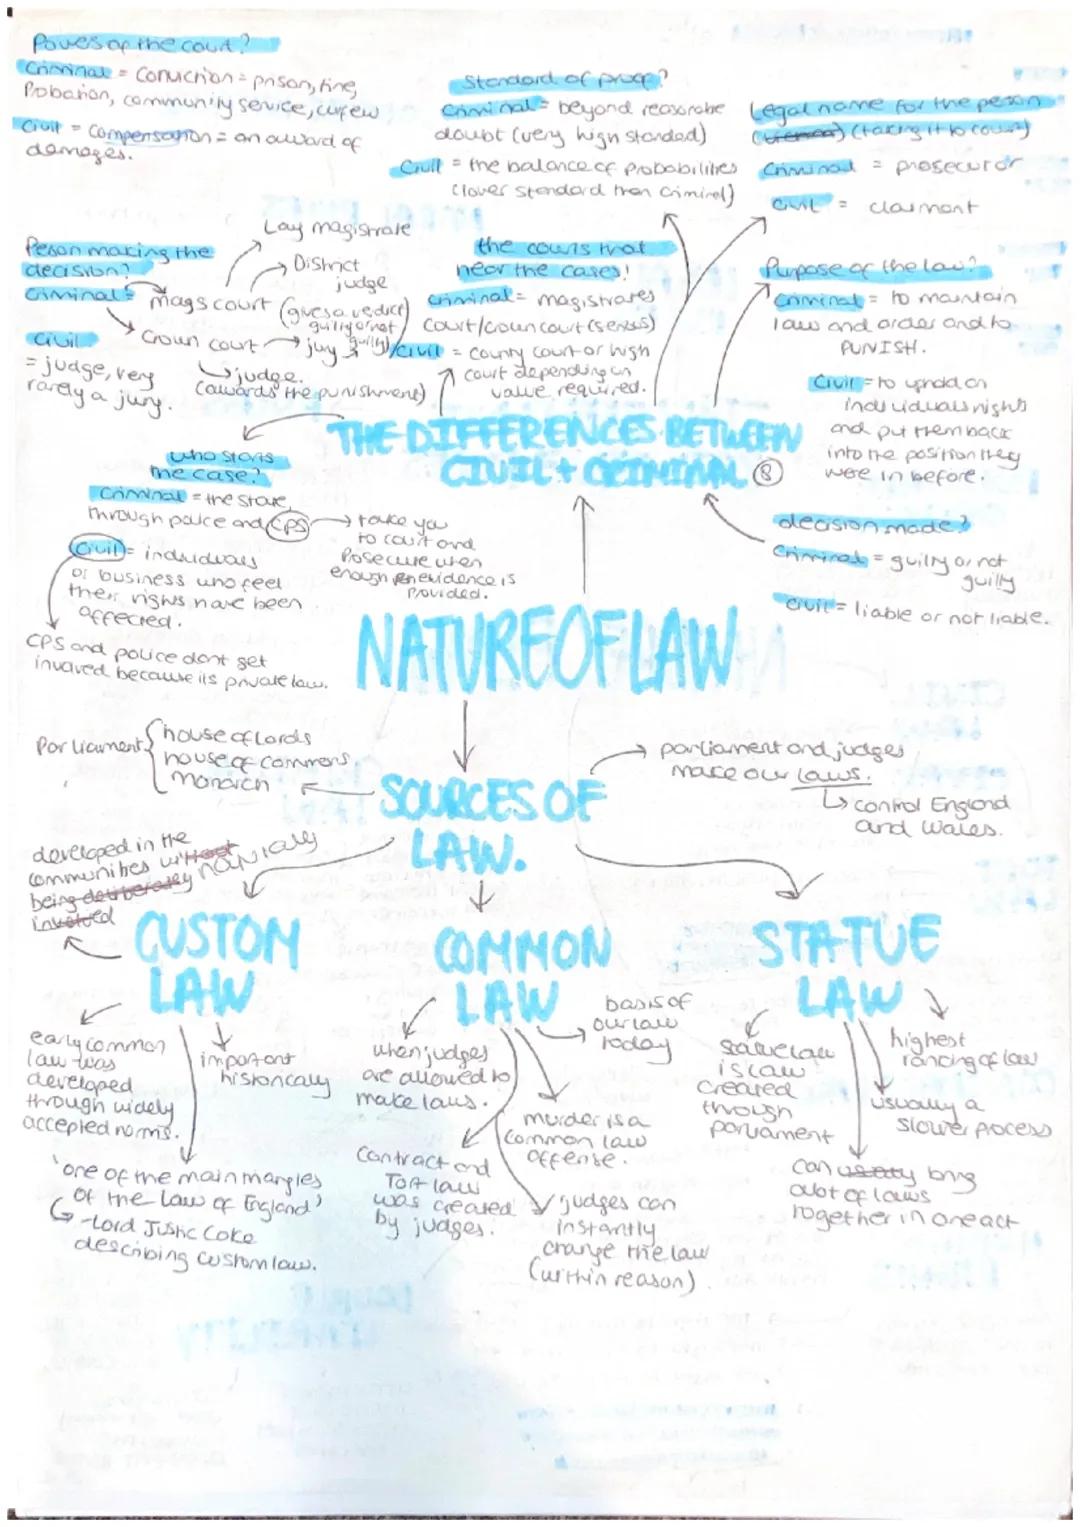 Powers of the court?
Criminal = Conviction = prison, fine,
Probation, community service, curfew
Civil = Compensation = an award of
damages.
Standard of proof?
Criminal = beyond reasonabe
doubt (very high standed)
Civil = the balance of probabilities
(lower standerd then criminel)
Legal name for the person
(taking it to court)
Criminal = prosecutor
Civil = claimant
Person making the
decision?
Criminal =
mags court
Lay magistrate
District
judge
(gives a verdict
guilty or not
guilty)
Crown court
jury
judge.
(awards the punishment)
Civil
= judge, very
rarely a jury.
the courts that
hear the cases!
Criminal = magistrates
court/crown court (serious)
Civil = county court or high
court depending on
value required.
Purpose of the law?
Criminal = to maintain
law and order and to
PUNISH.
Civil = to uphold an
individuals rights
and put them back
into the position they
were in before.
THE DIFFERENCES BETWEEN
CIVIL + CRIMINAL 8
who starts
the case?
Criminal = the state,
through police and CPS
take you
to court and
Prosecute when
enough evidence is
provided.
Civil = individuals
or business who feel
their rights have been
affected.
CPS and police dont get
involved because its private law.
decision made?
Criminal = guilty or not
guilty
civil = liable or not liable.
NATURE OF LAW
Parliament
house of Lords
house of commons
Monarch
SOURCES OF
LAW.
parliament and judges
make our laws.
control England
and Wales.
developed in the
communities without
being deliberatey naturally
involved
CUSTOM
LAW
early common
law was
developed
through widely
accepted norms.
important
historically
'one of the main triangles
of the law of England'
-Lord Justic Coke
describing custom law.
COMMON
LAW
when judges
are allowed to
make laws.
basis of
our law
today
murder is a
common law
offense.
Contract and
Tort law
was created
by judges.
judges can
instantly
change the law
(within reason).
STATUE
LAW
statue law
is law
created
through
parliament
highest
ranking of law
usually a
slower process
can bring
alot of laws
together in one act